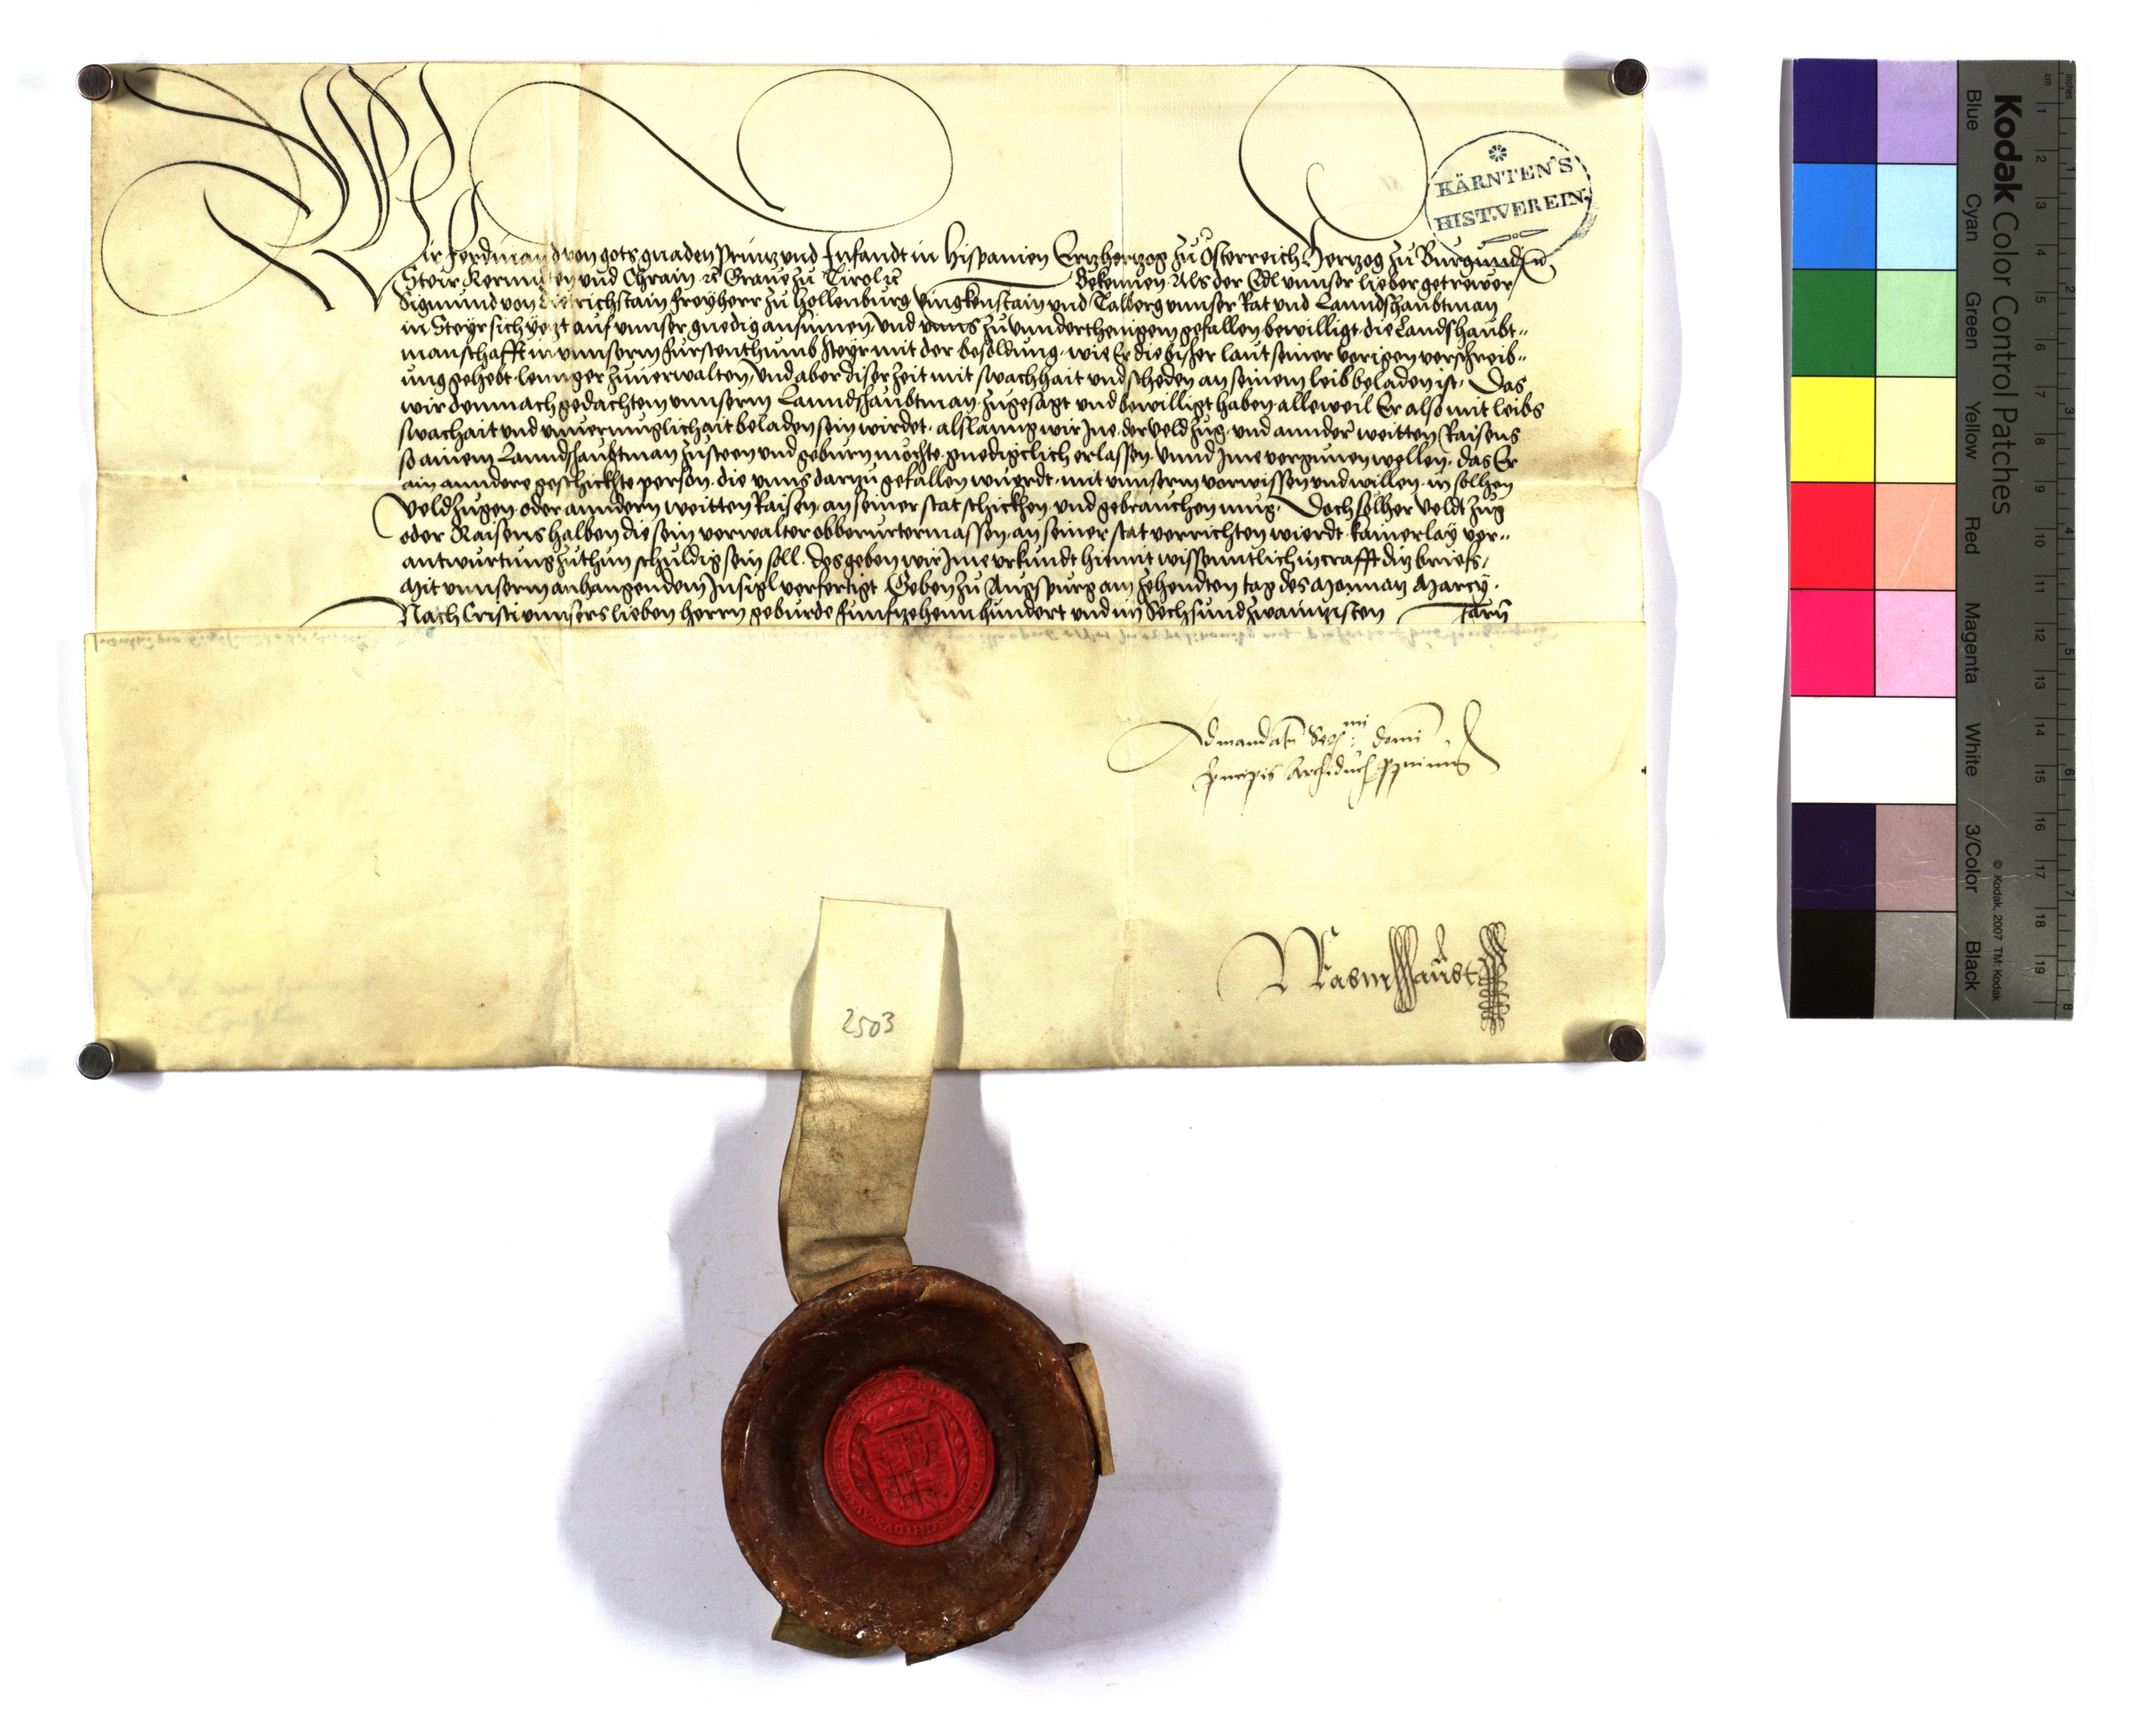 Wir Ferdinand von gots gnaden Prinz und Infandt in Hispanien Ertzhertzog zu Österreich Hertzog zu Burgundj
Steir Kernndten und Chrain &c Grave zu Tirol &c Bekennen Als der Edl unnser lieber getrewer
Sigmund von Dietrichstain Freyherr zu Hollenburg Vingkenstain und Talberg unnser Rat und Lanndshaubtman
in Steyr sich yetzt auf unnser gnedig ansynnen, und unns zu unnderthenigem gefallen bewilligt, die Landshaubt-
manschafft in unnserm Furstenthumb Steyr mit der besoldung, wie Er die bisher laut seiner vorigen verschreib-
ung gehebt, lennger zuuerwalten, und aber diser zeit mit swachhait und scheden an seinem leib beladen ist, Das
wir demnach gedachtem unnserm Lanndshaubtman zugesagt und bewilligt haben alleweil Er also mit leibs
swachait und unuermuglichait beladen sein wirdet, alslanng wir Ine, der veldzug, und annder weitten Raisens
so ainem Lanndshaubtman zusteen und geburn möchte, gnediglich erlassen, unnd Ime vergunen wellen, das Er
ain anndere geschickhte person, die unns darzu gefallen wuerdt, mit unnserm vorwissen und willen, in solhen
Veldzugen oder anndern weitten Raisen, an seiner stat schickhen, und gebrauchen mug, Doch solher Veldtzug
oder Raisens halben die sein verwalter obberurtermassen, an seiner stat verrichten wierdt, kainerlay ver-
antwurtung zuthun schuldig sein soll. Des geben wir Ime urkundt hiemit wissenntlich in crafft ditz briefs,
Mit unnserm anhangendem Insigl verfertigt Geben zu Augspurg am zehendten tag des Monnatz Marcij.
Nach Cristi unnsers lieben herrn geburde funfzehennhundert und im Sechsundzwainzigsten Jarn
Ad mandatū Serᵐⁱ domi
principis Archiduc proprium
2503
KÄRNTEN'S
HIST.VEREIN.
Kodak Color Control Patches
Blue Cyan Green Yellow Red Magenta White 3/Color Black
© Kodak, 2007 TM: Kodak
cm 1 2 3 4 5 6 7 8 9 10 11 12 13 14 15 16 17 18 19
inches 1 2 3 4 5 6 7 8